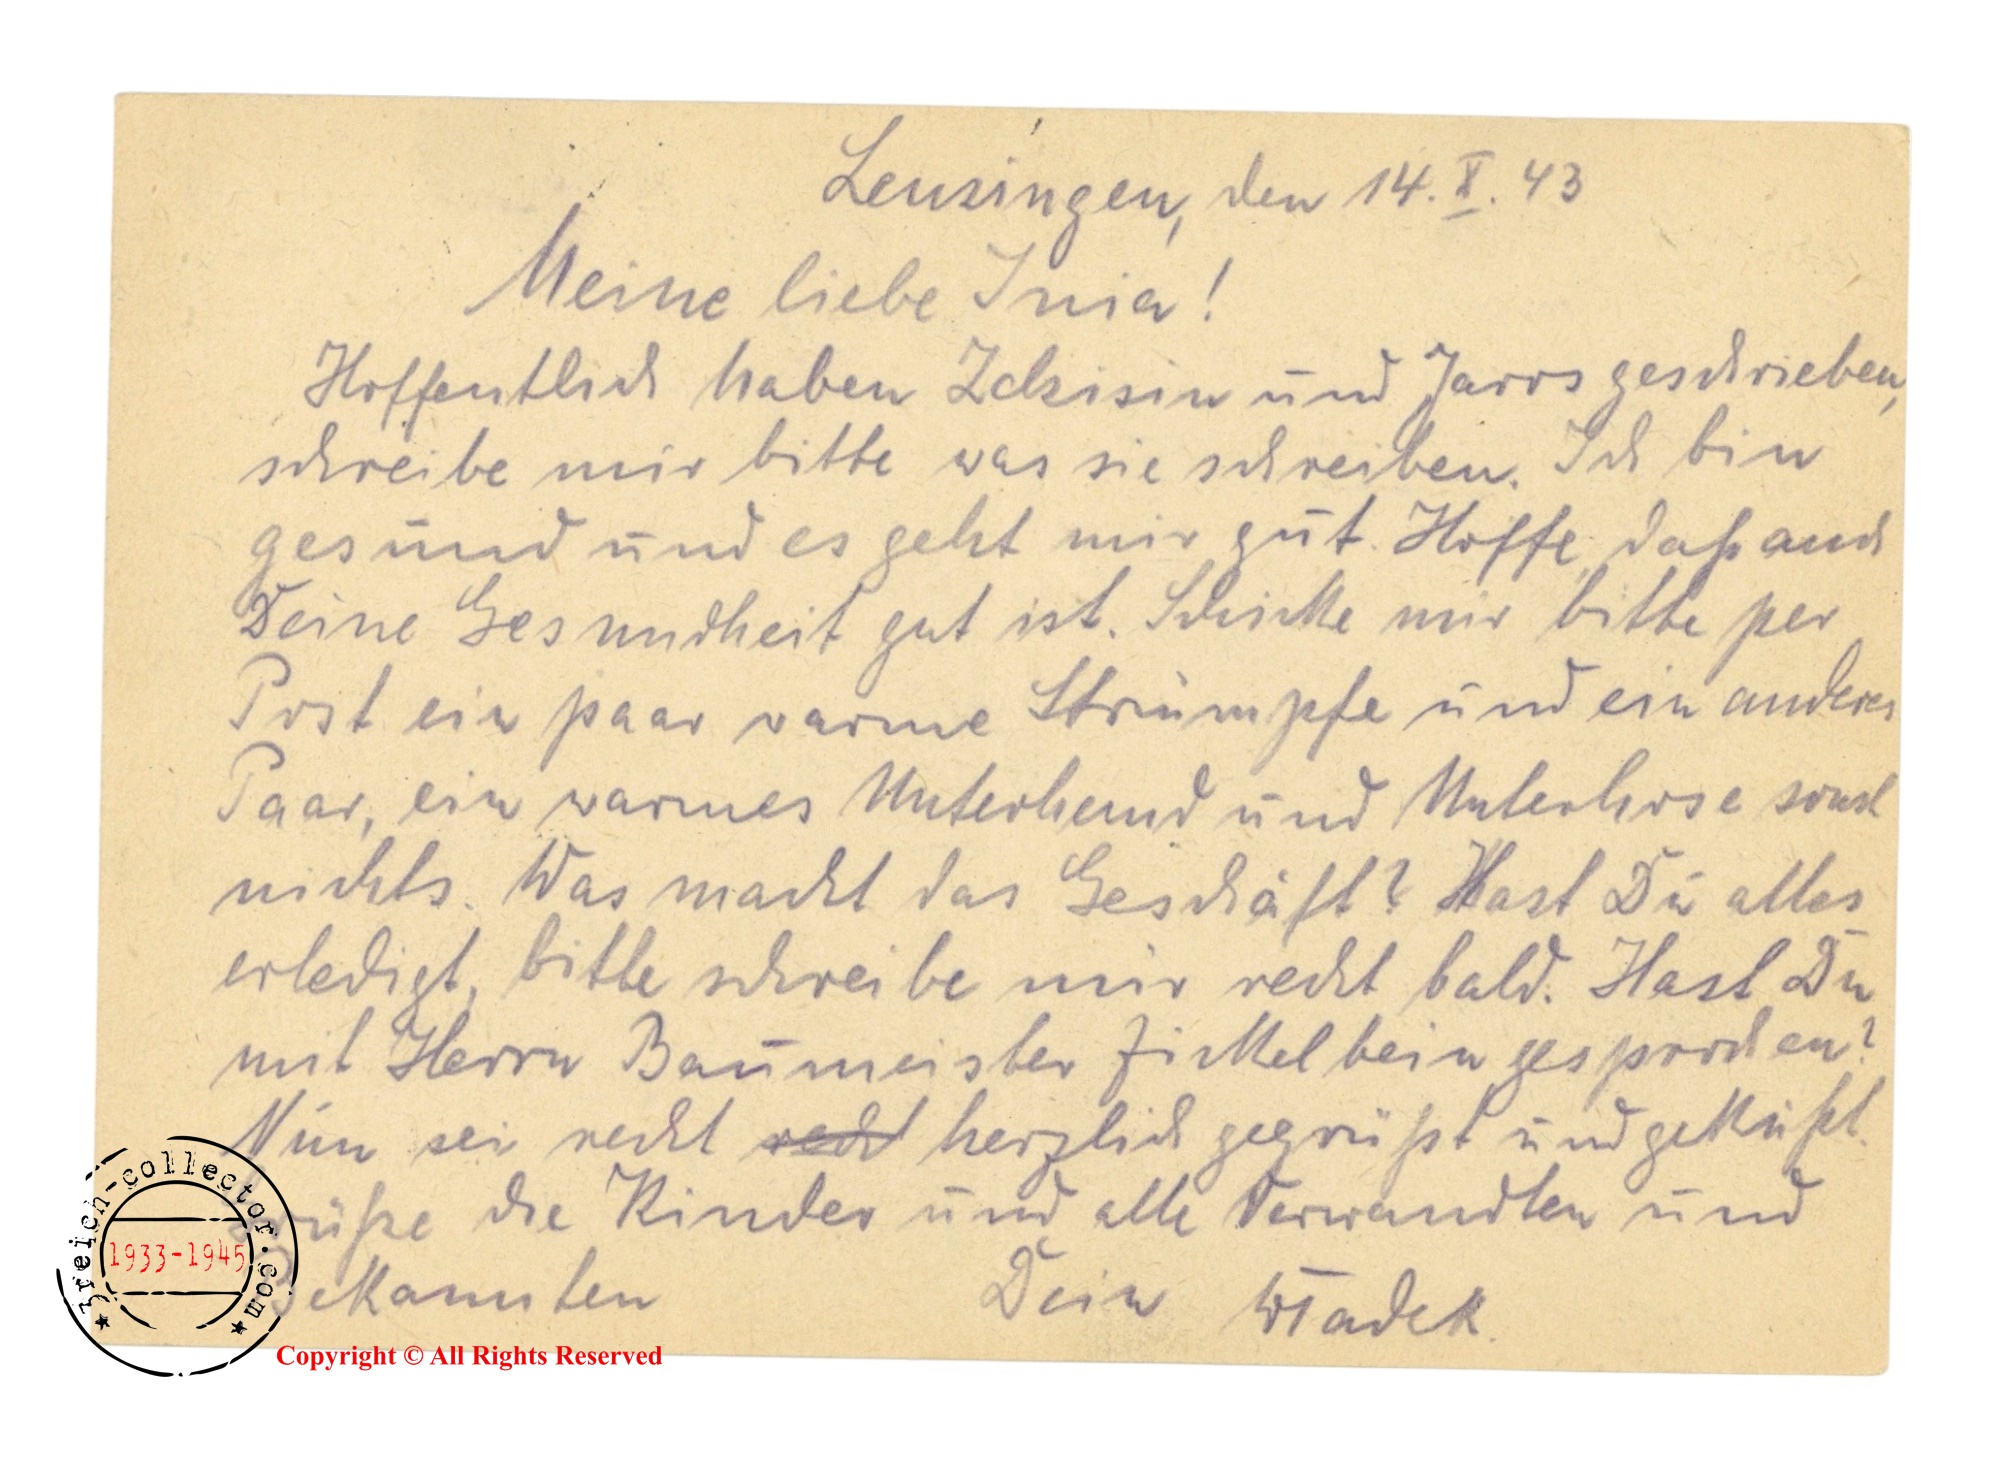 Lenzingen, den 14. X. 43
Meine liebe Inia!
Hoffentlich haben Zdzisin und Jaros geschrieben,
schreibe mir bitte was sie schreiben. Ich bin
gesund und es geht mir gut. Hoffe, daß auch
Deine Gesundheit gut ist. Schicke mir bitte per
Post ein paar warme Strümpfe und ein anderes
Paar, ein warmes Unterhemd und Unterhose sonst
nichts. Was macht das Geschäft? Hast Du alles
erledigt, bitte schreibe mir recht bald. Hast Du
mit Herrn Baumeister Zickelbein gesprochen?
Nun sei recht recht herzlich gegrüßt und geküßt.
Grüße die Kinder und alle Verwandten und
Bekannten Dein Władek.
3reich-collector.com
1933-1945
Copyright © All Rights Reserved